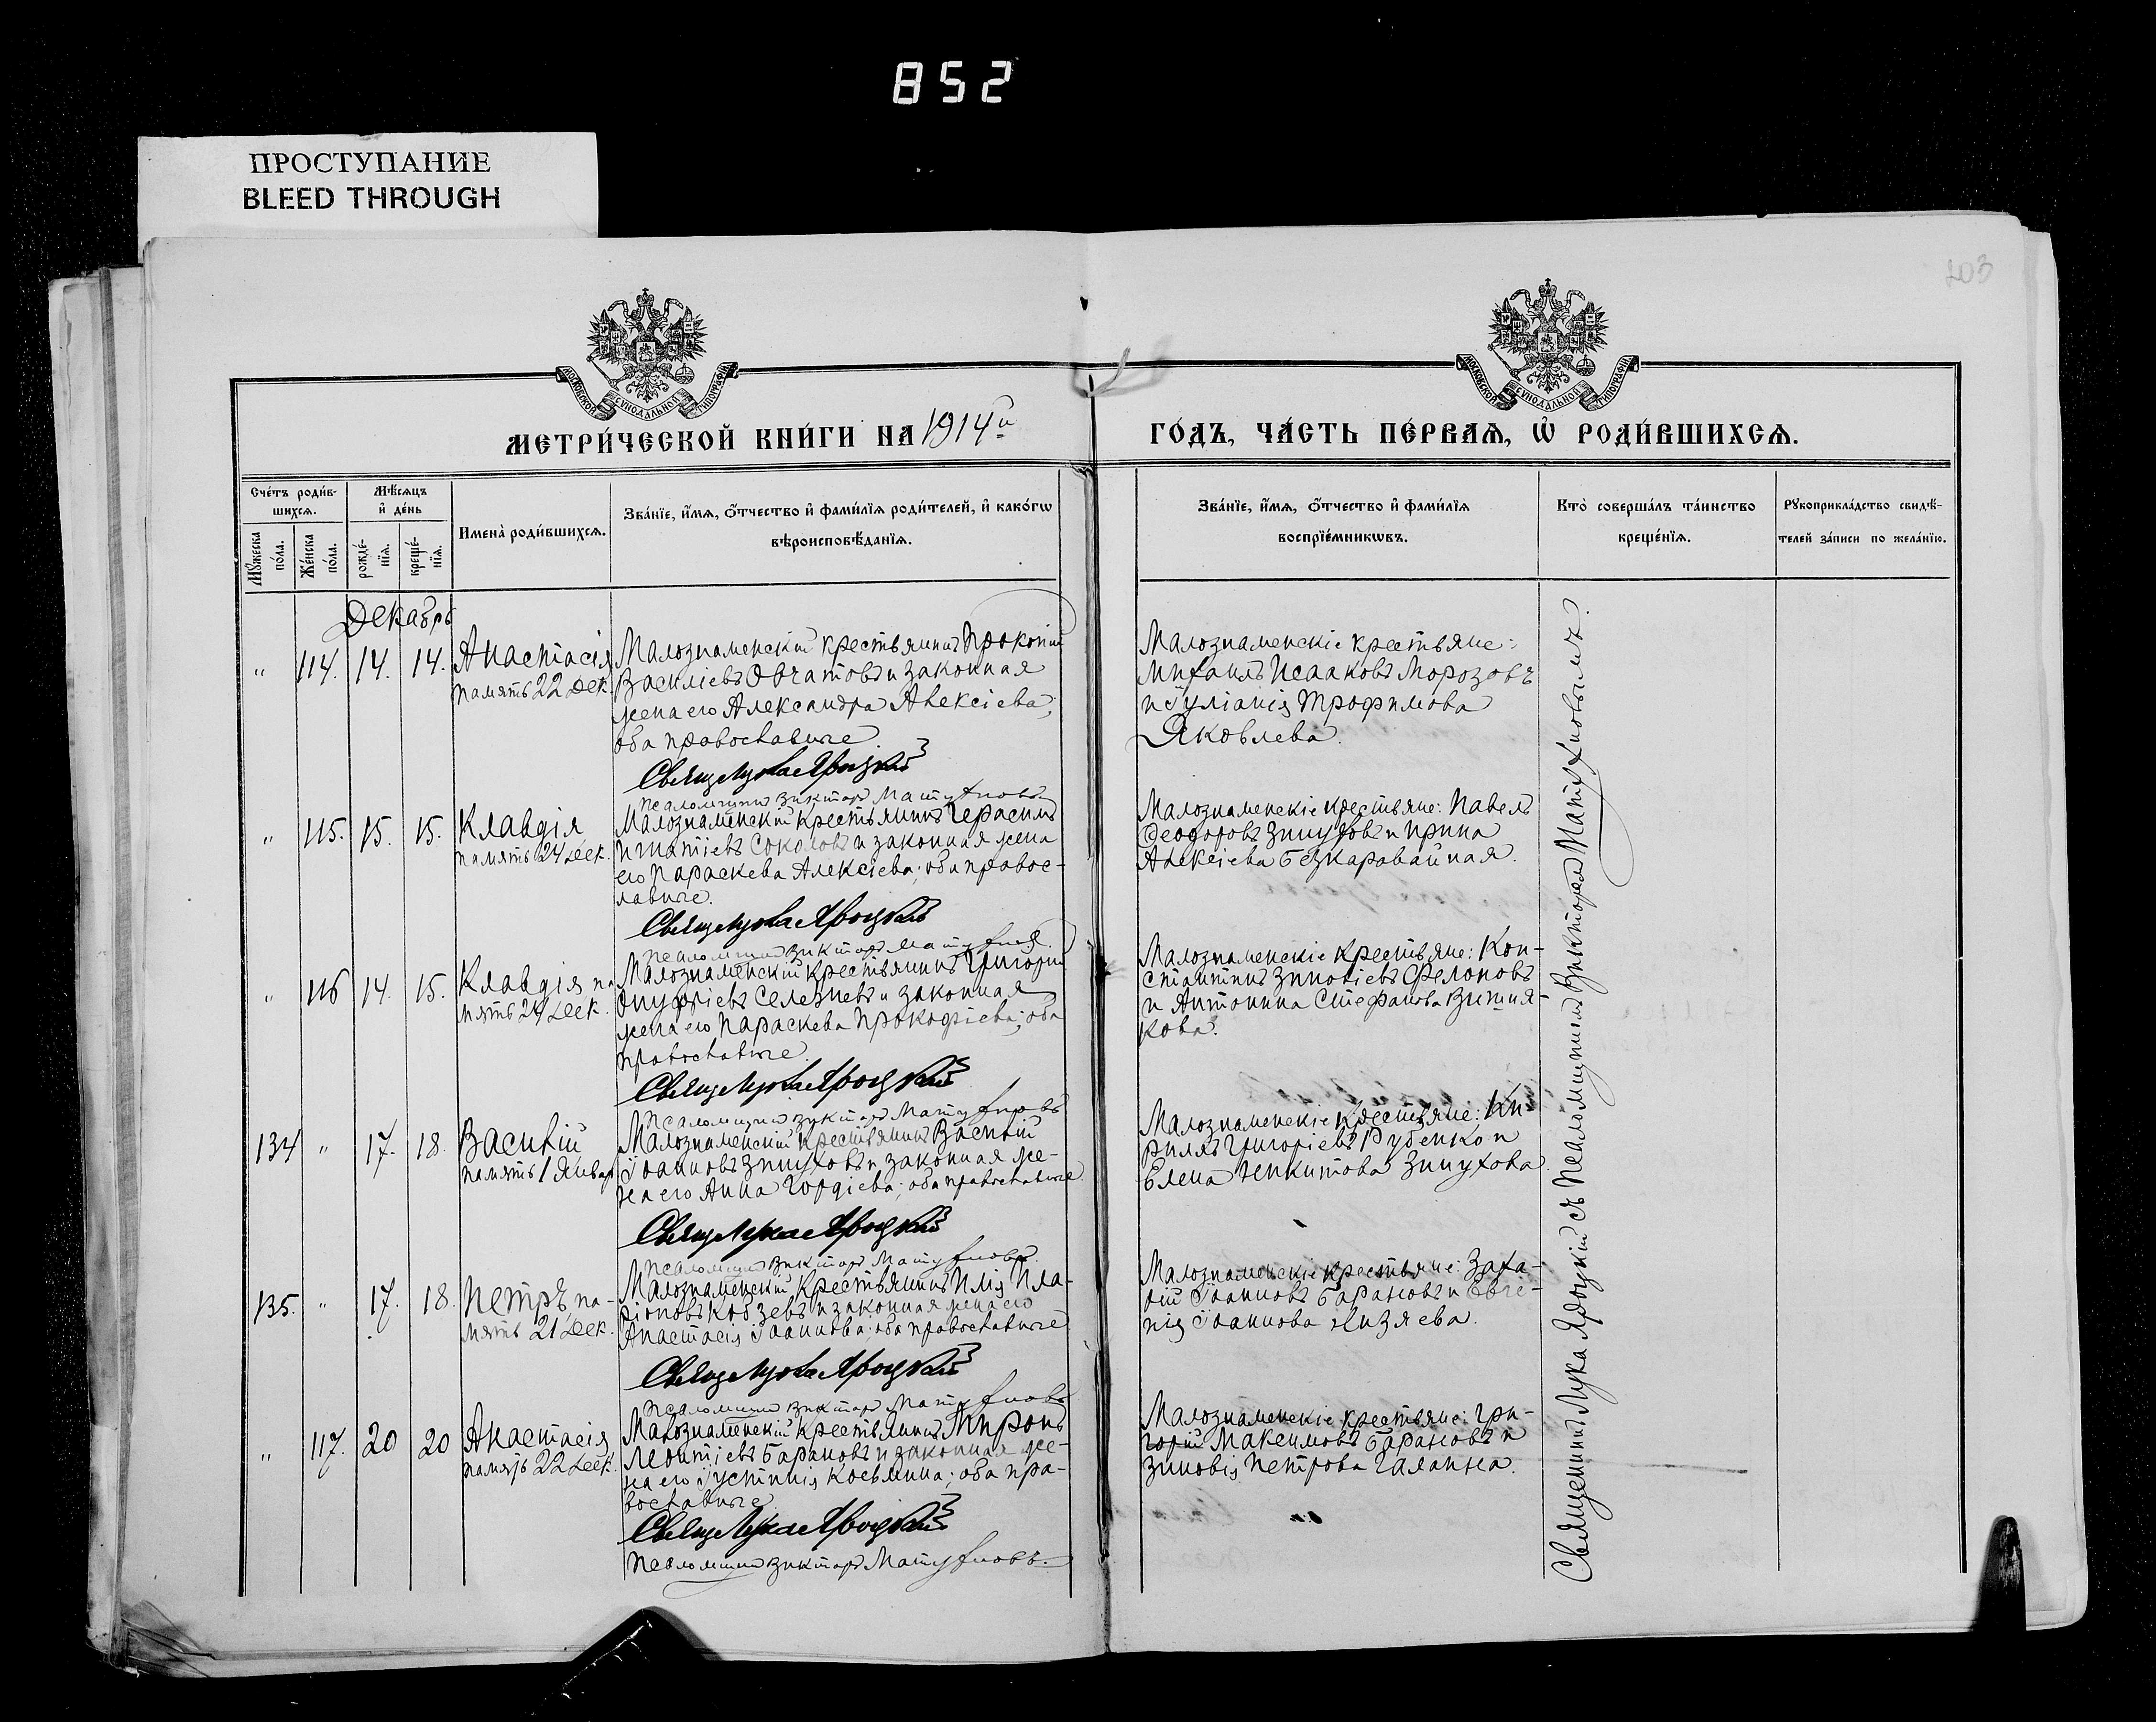 852
ПРОСТУПАНИЕ
BLEED THROUGH
203
МОСКОВСКОЙ СѴНОДАЛЬНОЙ ТИПОГРАФІИ
МОСКОВСКОЙ СѴНОДАЛЬНОЙ ТИПОГРАФІИ
МЕТРИ́ЧЕСКОЙ КНИ́ГИ НА 1914й
ГО́ДЪ, ЧА́СТЬ ПЕ́РВАѦ, Ѽ РОДИ́ВШИХСѦ.
Сче́тъ роди́в-
шихсѧ.
Мꙋ́жеска по́ла.
Же́нска по́ла.
Мѣ́сѧцъ
и҆ де́нь
рожде́-
нїѧ.
креще́-
нїѧ.
И҆мена̀ роди́вшихсѧ.
Зва́нїе, и҆́мѧ, ѻ҆́тчество и҆ фами́лїѧ роди́телей, и҆ како́гѡ
вѣроисповѣ́данїѧ.
Зва́нїе, и҆́мѧ, ѻ҆́тчество и҆ фами́лїѧ
воспрїе́мникѡвъ.
Кто̀ соверша́лъ та́инство
креще́нїѧ.
Рꙋкоприкла́дство свидѣ́-
телей за́писи по жела́нїю.
Декабрь
" 114. 14. 14. Анастасія
память 22 Дек.
Малознаменскій крестьянинъ Прокопій
Василіевъ Овчатовъ и законная
жена его Александра Алексіева;
оба православные
Свящ Лука Яроцкій
Псаломщикъ Викторъ Матухновъ
Малознаменскіе крестьяне:
Михаилъ Исааковъ Морозовъ
и Іуліанія Трофимова
Яковлева.
" 115. 15. 15. Клавдія
память 24 Дек.
Малознаменскій крестьянинъ Герасимъ
Игнатіевъ Соколовъ и законная жена
его Параскева Алексіева; оба правос-
лавные.
Свящ Лука Яроцкій
Псаломщикъ Викторъ Матухновъ
Малознаменскіе крестьяне: Павелъ
Ѳеодоровъ Зинуховъ и Ирина
Алексіева Безкаравайная.
" 116 14. 15. Клавдія па
мять 24 Дек.
Малознаменскій крестьянинъ Григорій
Онуфріевъ Селезневъ и законная
жена его Параскева Прокофіева; оба
православные.
Свящ Лука Яроцкій
Псаломщикъ Викторъ Матухновъ
Малознаменскіе крестьяне: Кон-
стантинъ Зиновіевъ Филоновъ
и Антонина Стефанова
кова.
134 " 17. 18. Василій
память 1 Январ
Малознаменскій крестьянинъ Василій
Іоанновъ Зинуховъ и законная же-
на его Анна Гордіева; оба православные
Свящ Лука Яроцкій
Псаломщикъ Викторъ Матухновъ
Малознаменскіе крестьяне: Ки-
риллъ Григоріевъ Рубенко и
Елена Никитова Зинухова
135. " 17. 18. Петръ, па-
мять 21 Дек.
Малознаменскій крестьянинъ Илія Ила-
ріоновъ Кобзевъ и законная жена его
Анастасія Іоаннова; оба православные
Свящ Лука Яроцкій
Псаломщикъ Викторъ Матухновъ
Малознаменскіе крестьяне: Заха-
рій Іоанновъ Барановъ и Евге-
нія Іоаннова Князева.
" 117. 20 20 Анастасія
память 22 Дек.
Малознаменскій крестьянинъ Миронъ
Леонтіевъ Барановъ и законная же-
на его Іустинія Косьмина; оба пра-
вославные
Свящ Лука Яроцкій
Псаломщикъ Викторъ Матухновъ.
Малознаменскіе крестьяне: Гри-
горій Максимовъ Барановъ и
Зиновія Петрова Галанжа.
Священникъ Лука Яроцкій съ Псаломщикомъ Викторомъ Матухновымъ.